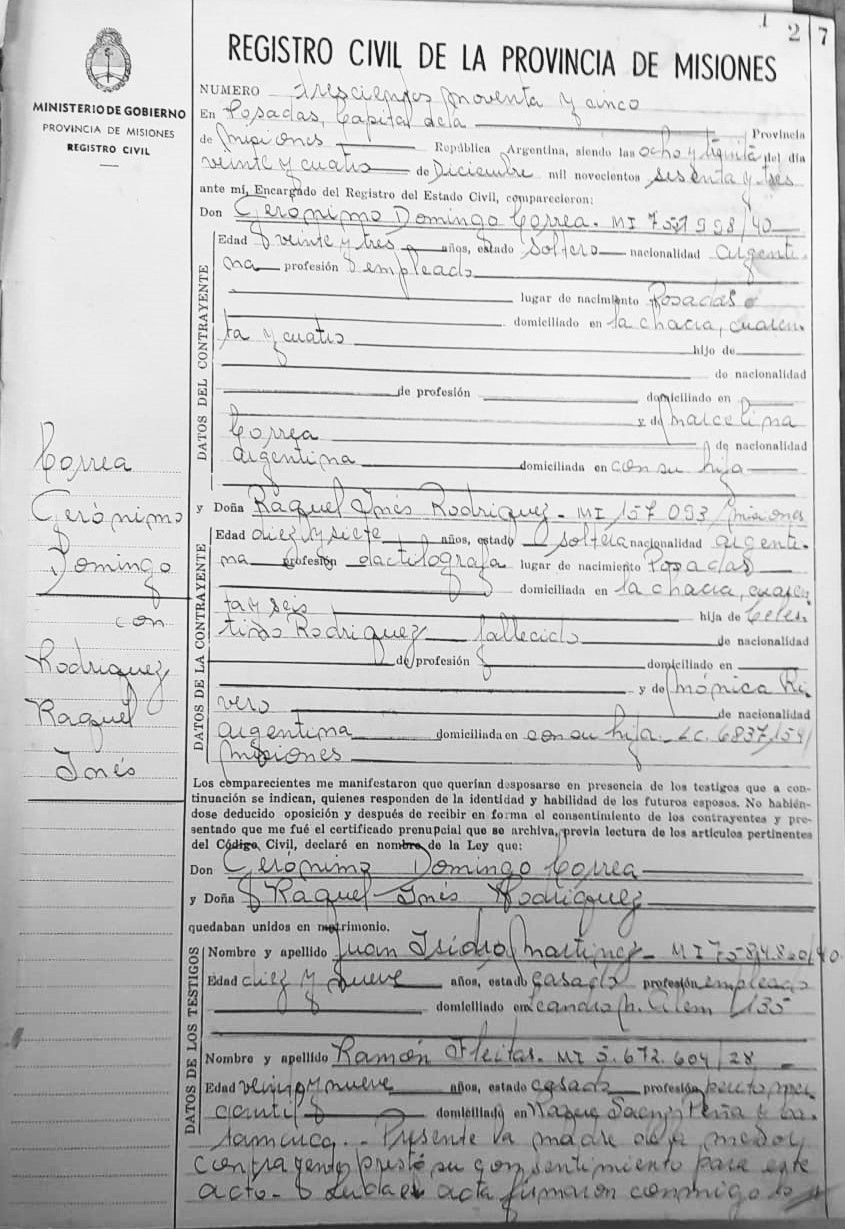 1 2 7
REGISTRO CIVIL DE LA PROVINCIA DE MISIONES
MINISTERIO DE GOBIERNO
PROVINCIA DE MISIONES
REGISTRO CIVIL
NUMERO trescientos noventa y cinco
En Posadas, Capital de la Provincia
de Misiones República Argentina, siendo las ocho y treinta del día
veinte y cuatro de Diciembre mil novecientos sesenta y tres
ante mí, Encargado del Registro del Estado Civil, comparecieron:
Don Gerónimo Domingo Correa. MI
Edad veinte y tres años, estado soltero nacionalidad argenti-
na profesión empleado
lugar de nacimiento Posadas
domiciliado en la chacra, cuaren
ta y cuatro hijo de
de nacionalidad
de profesión domiciliado en
y de Marcelina
Correa de nacionalidad
argentina domiciliada en con su hija
DATOS DEL CONTRAYENTE
Correa
Gerónimo
Domingo
con
Rodriguez
Raquel
Inés
y Doña Raquel Inés Rodriguez - MI 157 093/Misiones
Edad diez y siete años, estado soltera nacionalidad argenti-
na profesión dactilografa lugar de nacimiento Posadas
domiciliada en la chacra, cuaren
ta y seis hija de Celes
tino Rodriguez fallecido de nacionalidad
de profesión domiciliado en
y de Mónica Ri
vero de nacionalidad
argentina domiciliada en con su hija - LC. 6837,154/
Misiones
DATOS DE LA CONTRAYENTE
Los comparecientes me manifestaron que querían desposarse en presencia de los testigos que a con-
tinuación se indican, quienes responden de la identidad y habilidad de los futuros esposos. No habién-
dose deducido oposición y después de recibir en forma el consentimiento de los contrayentes y pre-
sentado que me fué el certificado prenupcial que se archiva, previa lectura de los artículos pertinentes
del Código Civil, declaré en nombre de la Ley que:
Don Gerónimo Domingo Correa
y Doña Raquel Inés Rodriguez
quedaban unidos en matrimonio.
Nombre y apellido Juan Isidro Martinez - MI
Edad diez y nueve años, estado casado profesión empleado
domiciliado en Leandro N. Alem 1135
Nombre y apellido Ramón Fleitas. MI 5.672.604/28
Edad años, estado casado profesión perito mer
cantil domiciliado en Roque Saenz Peña y Ca-
tamarca. - Presente la madre de la menor
contrayente prestó su consentimiento para este
acto - acta firmaron conmigo
DATOS DE LOS TESTIGOS